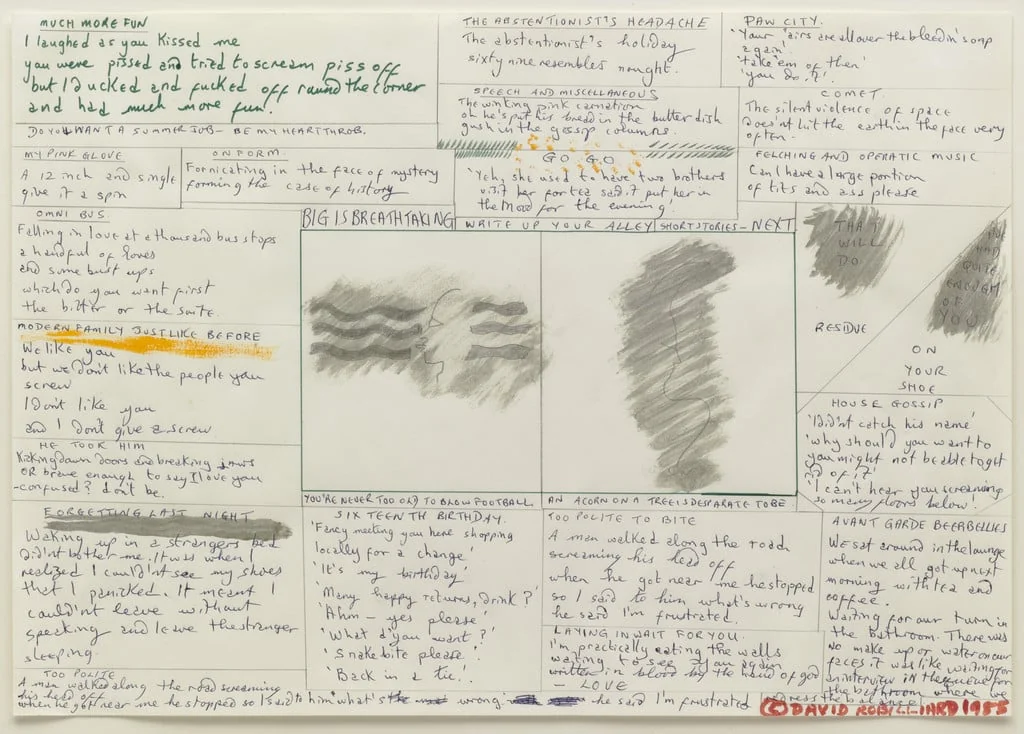 MUCH MORE FUN
I laughed as you kissed me
you were pissed and tried to scream piss off
but I ducked and fucked off round the corner
and had much more fun.
DO YOU WANT A SUMMER JOB – BE MY HEARTTHROB.
THE ABSTENTIONIST'S HEADACHE
The abstentionist's holiday
sixty nine resembles nought.
PAW CITY.
'Your 'airs are all over the bleedin' soap
again'.
'take 'em off then'
'you do it'.
SPEECH AND MISCELLANEOUS
The winking pink carnation
oh he's put his bread in the butter dish
gush in the gossip columns.
COMET.
The silent violence of space
doesn't hit the earth in the face very
often.
MY PINK GLOVE
A 12 inch and single
give it a spin
ON FORM.
Fornicating in the face of mystery
forming the case of history
GO GO
'Yeh, she used to have two brothers
visit her for tea said it put her in
the mood for the evening.'
FELCHING AND OPERATIC MUSIC
Can I have a large portion
of tits and ass please
OMNI BUS.
Falling in love at a thousand bus stops
a handful of loves
and some bust ups
which do you want first
the bitter or the suite.
BIG IS BREATHTAKING
WRITE UP YOUR ALLEY
SHORT STORIES – NEXT
THAT
WILL
DO
I'VE
HAD
QUITE
ENOUGH
OF
YOU
RESIDUE
ON
YOUR
SHOE
MODERN FAMILY JUST LIKE BEFORE
We like you
but we don't like the people you
screw
I don't like you
and I don't give a screw
HE TOOK HIM
Kicking down doors and breaking jaws
OR brave enough to say I love you
-confused? don't be.
HOUSE GOSSIP
'I didn't catch his name'
'why should you want to
you might not be able to get
rid of it?'
'I can't hear you screaming
so many floors below.'
YOU'RE NEVER TOO OLD TO BLOW FOOTBALL
AN ACORN ON A TREE IS DESPARATE TO BE
FORGETTING LAST NIGHT
Waking up in a strangers bed
didn't bother me. It was when I
realized I could'nt see my shoes
that I panicked. It meant I
could'nt leave without
speaking and leave the stranger
sleeping.
SIXTEENTH BIRTHDAY.
'Fancy meeting you here shopping
locally for a change'
'It's my birthday'
'Many happy returns, drink?'
'Ahm – yes please'
'What d'you want?'
'Snakebite please.'
'Back in a tic.'
TOO POLITE TO BITE
A man walked along the road
screaming his head off
when he got near me he stopped
so I said to him what's wrong
he said I'm frustrated.
LAYING IN WAIT FOR YOU.
I'm practically eating the walls
waiting to see you again
written in blood by the hand of god
LOVE
AVANT GARDE BEERBELLIES
We sat around in the lounge
when we all got up next
morning with tea and
coffee.
Waiting for our turn in
the bathroom. There was
no make up or water on our
faces it was like waiting for
an interview in the queue for
the bathroom where we
redress the balance.
TOO POLITE
A man walked along the road screaming
his head off
when he got near me he stopped so I said to him what's the wrong he said I'm frustrated
© DAVID ROBILLIARD 1985